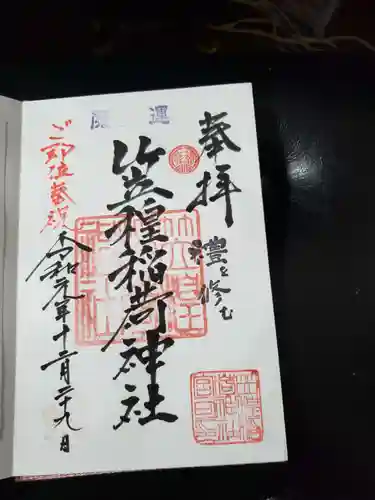 開運
奉拝
禮を修む
笠䅣稲荷神社
ご即位奉祝
令和元年十二月二十九日